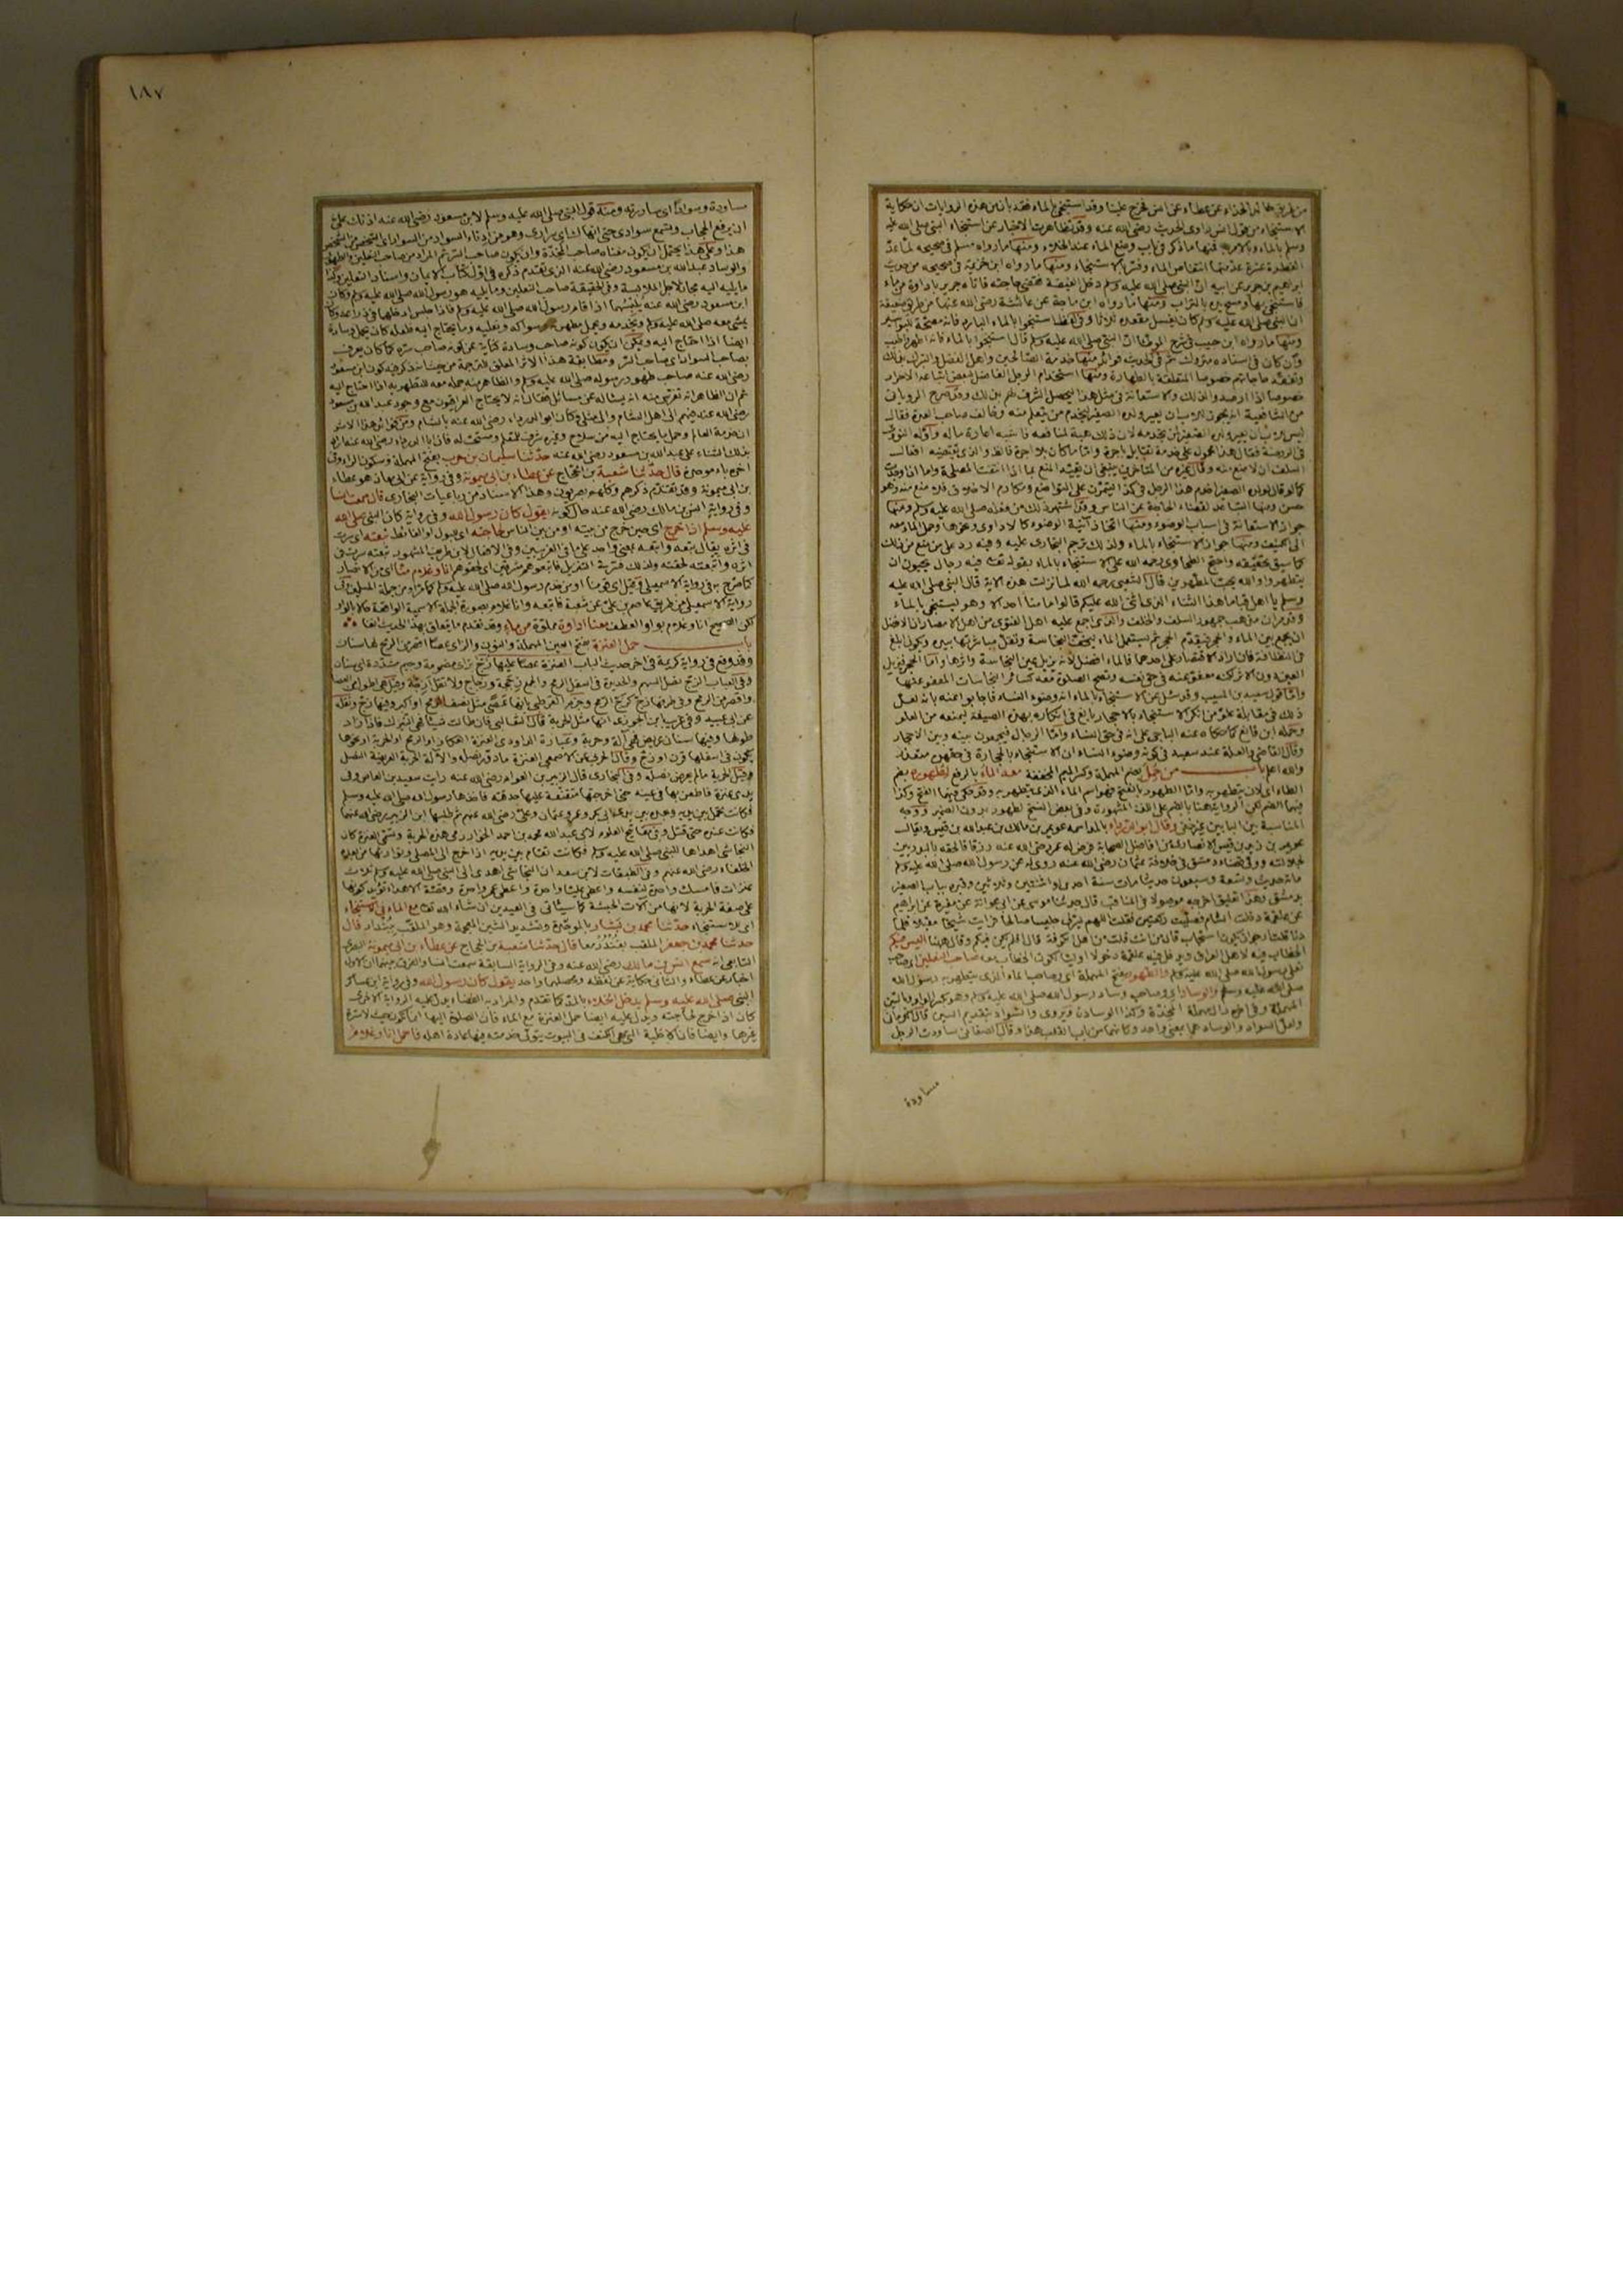 من طريق خالد الحذاء عن عطاء عن انس فخرج علينا وقد استنجى بالماء فقد بان من هذه الروايات ان حكاية
الاستنجاء من قول انس راوى الحديث رضى الله عنه وقد تظاهرت الاخبار عن استنجاء النبى صلى الله عليه
وسلم بالماء وبالامر به فمنها ما ذكر فى باب وضع الماء عند الخلاء ومنها ما رواه مسلم فى صحيحه لما عدّ
الفطرة عشرة عدّ منها انتقاص الماء وفسّر بالاستنجاء ومنها ما رواه ابن خزيمة فى صحيحه من حديث
ابراهيم بن جرير عن ابيه انّ النبى صلى الله عليه وسلم دخل الغيضة فقضى حاجته فاتاه جرير باداوة من ماء
فاستنجى بها ومسح يده بالتراب ومنها ما رواه ابن ماجة عن عائشة رضى الله عنها
ان النبى صلى الله عليه وسلم كان يغسل مقعده ثلاثا وفى لفظ استنجوا بالماء البارد فانه مصحّة للبواسير
ومنها ما رواه ابن حبيب فى شرح الموطأ انّ النبى صلى الله عليه وسلم قال استنجوا بالماء فانه اطهر واطيب
وان كان فى اسناده متروك ثم فى الحديث فوائد منها خدمة الصّالحين واهل الفضل والتبرك بذلك
وتفقّد حاجاتهم خصوصا المتعلقة بالطهارة ومنها استخدام الرجل الفاضل لبعض اتباعه الاحرار
خصوصا اذا ارصدوا لذلك والاستعانة فى مثل هذا فيحصل الشرف لهم بذلك وقد صرح الرويانى
من الشافعية انه يجوز
فى الروضة فقال هذا محمول على خدمة تقابل باجرة وامّا ما كان بلا اجرة
حسن ومنها التباعد لقضاء الحاجة عن الناس وقد اشتهر ذلك من فعله صلى الله عليه وسلم ومنها
جواز الاستعانة فى اسباب الوضوء ومنها اتخاذ آنية الوضوء كالاداوى ونحوها وحمل الماء معه
الى الكنيف ومنها جواز الاستنجاء بالماء ولذلك ترجم البخارى عليه وفيه رد على من منع من ذلك
كما سبق تحقيقه واحتج الطحاوى رحمه الله على الاستنجاء بالماء بقوله تعالى فيه رجال يحبون ان
يتطهروا والله يحبّ المطّهرين قال الشعبى رحمه الله لما نزلت هذه الاية قال النبى صلى الله عليه
وسلم يا اهل قبا ما هذا الثناء الذى اثنى الله عليكم قالوا ما منا احد الا وهو يستنجى بالماء
وقد مرّ ان مذهب جمهور السلف والخلف والذى اجمع عليه اهل الفتوى من اهل الامصار ان الافضل
ان يجمع بين الماء والحجر فيقدّم الحجر ثم يستعمل الماء ليخفّ النجاسة وتقلّ مباشرتها بيده ويكون ابلغ
فى النظافة فان اراد الاقتصار على احدهما فالماء افضل لانه يزيل عين النجاسة واثرها وامّا الحجر فيزيل
العين دون الاثر لكنه معفوّ عنه فى حق نفسه وتصح الصلوة معه كسائر النجاسات المعفو عنها
وامّا قول سعيد بن المسيب وقد سئل عن الاستنجاء بالماء انه وضوء النساء فاجابوا عنه بانه لعل
ذلك فى مقابلة غلوّ من انكر الاستنجاء بالاحجار بالغ فى انكاره بهذه الصيغة ليمنعه من الغلو
وحمله ابن قانع كما حكاه عنه الباجى على انه فى حق النساء وامّا الرجال فيجمعون بينه وبين الاحجار
وقال القاضى والعلة عند سعيد فى كونه وضوء النساء ان الاستنجاء بالحجارة فى حقهن متعذّر
والله اعلم باب من حُمِلَ بضم المهملة وكسر الميم المخففة معه الماءُ بالرفع لطهوره بضم
الطاء اى لان يتطهر به وامّا الطهور بالفتح فهو اسم الماء الذى يتطهر به وقد حكى فيهما الفتح وكذا
فيهما الضم لكن الرواية هنا بالضم على اللغة المشهورة وفى بعض النسخ لطهور بدون الضمير ووجه
المناسبة بين البابين غير خفى وقال ابو الدرداء بالمد اسمه عويمر بن مالك بن عبدالله بن قيس ويقال
عويمر بن زيد بن قيس الانصارى من افاضل الصحابة فرض له عمر رضى الله عنه رزقا فالحقه بالبدريين
لجلالته وولى قضاء دمشق فى خلافة عثمان رضى الله عنه روى له عن رسول الله صلى الله عليه وسلم
مائة حديث وتسعة وسبعون حديثا مات سنة احدى او اثنتين وثلاثين وقبره بباب الصغير
بدمشق وهذا تعليق اخرجه موصولا فى المناقب قال حدثنا موسى عن ابى عوانة عن مغيرة عن ابراهيم
عن علقمة دخلت الشام فصلّيت ركعتين فقلت اللهم يسّر لى جليسا صالحا فرايت شيخا مقبلا فلمّا
دنا قلت ارجو ان يكون استجاب قال من انت قلت من اهل الكوفة قال افلم يكن فيكم وقال ههنا اليس فيكم
الخطاب فيه لاهل العراق ويدخل فيه علقمة دخولا اوليا لكون الخطاب معه صاحب النعلين اى صاحب
نعلى رسول الله صلى الله عليه وسلم والطهور بفتح المهملة اى وصاحب ماء الذى يتطهر به رسول الله
صلى الله عليه وسلم والوساد اى وصاحب وساد رسول الله صلى الله عليه وسلم وهو بكسر الواو وبالسّين
المهملة وفى اخره دال مهملة المخدّة وكذا الوسادة ويروى والسّواد بتقديم السين قال الكرمانى
ولعلّ السواد والوساد هما بمعنى واحد وكانهما من باب القلب هذا وقال الصغانى ساودت الرجل
مساودة
١٨٧
مساودة وسوادا اى ساررته ومنه قول النبى صلى الله عليه وسلم لابن مسعود رضى الله عنه اذنك علىّ
ان يرفع الحجاب وتسمع سوادى حتى انهاك اى سرارى وهو من ادناء السواد من السواد اى الشخص من الشخص
هذا وعلى هذا يحتمل ان يكون معناه صاحب المخدّة وان يكون صاحب السّر ثم المراد من صاحب النعلين والطهور
والوساد عبدالله بن مسعود رضى الله عنه الذى تقدم ذكره فى اوّل كتاب الايمان واسناد النعلين وكذا
ما يليه اليه مجاز لاجل الملابسة وفى الحقيقة صاحب النعلين وما يليه هو رسول الله صلى الله عليه وسلم وكان
ابن مسعود رضى الله عنه يُلبسُهما اذا قام رسول الله صلى الله عليه وسلم فاذا جلس ادخلها فى ذراعه وكان
يمشى معه صلى الله عليه وسلم ويخدمه ويحمل مطهرته وسواكه ونعليه وما يحتاج اليه فلعله كان يحمل وسادة
ايضا اذا احتاج اليه ويمكن ان يكون كونه صاحب وسادة كناية عن كونه صاحب سرّه كما كان يعرف
بصاحب السواد اى صاحب السّر ومطابقة هذا الاثر المعلق للترجمة من حيث انه ذكر فيه كون ابن مسعود
رضى الله عنه صاحب طهور رسوله صلى الله عليه وسلم والظاهر منه حمله معه للتطهر به اذا احتاج اليه
ثم ان الظاهر انه تعرّض منه انه يشاله عن مسائل فقال انه لا يحتاج العراقيون مع وجود عبدالله بن مسعود
رضى الله عنه فيهم الى اهل الشام والى مثلى وكان ابو الدرداء رضى الله عنه بالشام ومن فوائد هذا الاثر
ان خدمة العالم وحمل ما يحتاج اليه من سلاح وغيره شرف للمتعلم ومستحب له
بذلك الثناء على عبدالله بن مسعود رضى الله عنه حدّثنا سليمان بن حرب بفتح المهملة وسكون الراء وفى
اخره باء موحدة قال حدّثنا شعبة بن الحجّاج عن عطاء بن ابى ميمونة وفى رواية عن ابى معاذ هو عطاء
بن ابى ميمونة وقد تقدّم ذكرهم وكلهم بصريون وهذا الاسناد من رباعيات البخارى قال سمعت انسا
وفى رواية انس بن مالك رضى الله عنه حال كونه يقول كان رسول الله وفى رواية كان النبى صلى الله
عليه وسلم اذا خرج اى حين خرج من بيته او من بين الناس لحاجته اى لبول او لغائط تبعته اى سرت
فى اثره يقال تبعه واتبعه بمعنى واحد
كما صُرّح به فى رواية الاسمعيلى وقيل اى من خدم رسول الله صلى الله عليه وسلم كما مرّ او من جملة المسلمين وفى
رواية الاسمعيلى من طريق عاصم بن على عن شعبة فاتبعه وانا غلام بصورة الجملة الاسمية الواقعة حالا بالواو
لكن الصحيح انا وغلام بواو العطف معنا اداوة مملوّة من ماء وقد تقدم ما يتعلق بهذا الحديث انفا
باب حمل العنزة بفتح العين المهملة والنون والزاى عصًا اقصر من الرمح لها سنان
وقد وقع فى رواية كريمة فى اخر حديث الباب العنزة عصًا عليها زجّ بزاى مضمومة وجيم مشدّدة اى سنان
وفى العباب الزجّ نصل السهم والحديدة فى اسفل الرمح والجمع زججة وزجاج ولا تقل ازجّة وقيل هى اطول من العصا
واقصر من الرمح وفى طرفها زجّ كزجّ الرمح
عن ابى عبيد وفى غريب ابن الجوزى انها مثل الحربة قال الثعالبى فان طالت شيئا فهى النيزك فاذا زاد
طولها وفيها سنان عريض فهى آلة وحربة وعبارة الداودى العنزة العكاز او الرمح او الحربة او نحوها
يكون فى اسفلها قرن او زجّ وقال الحربى عن الاصمعى العنزة ما دوّر نصله والآلة الحربة العريضة النصل
وقيل الحربة ما لم يعرض نصله وفى البخارى قال الزبير بن العوام رضى الله عنه رايت سعيد بن العاص وفى
يدى عنزة فاطعن بها فى عينه حتى اخرجتها متفقئة عليها حدقته فاخذها رسول الله صلى الله عليه وسلم
فكانت تحمل بين يديه وبعده بين يدى ابى بكر وعمر وعثمان وعلى رضى الله عنهم ثم طلبها ابن الزبير رضى الله عنهما
فكانت عنده حتى قتل وفى مفاتيح العلوم لابى عبدالله محمد بن احمد الخوارزمى هذه الحربة وتسمّى العنزة كان
النجاشى اهداها للنبى صلى الله عليه وسلم فكانت تقام بين يديه اذا خرج الى المصلى وتوارثها من بعده
الخلفاء رضى الله عنهم وفى الطبقات لابن سعد ان النجاشى اهدى الى النبى صلى الله عليه وسلم ثلاث
عنزات فامسك واحدة لنفسه واعطى عليا واحدة واعطى عمر واحدة وقصّة الاهداء تؤيد كونها
على صفة الحربة لانها من آلات الحبشة كما سيأتى فى العيدين ان شاء الله تعالى مع الماء فى الاستنجاء
اى للاستنجاء حدّثنا محمد بن بَشار بالموحّدة وتشديد الشين المعجمة وهو الملقّب ببُندار قال
حدثنا محمد بن جعفر الملقب بغُنْدُر معا قال حدّثنا شعبة بن الحجاج عن عطاء بن ابى ميمونة البصرى
التابعى انه سمع انس بن مالك رضى الله عنه وفى الرواية السابقة سمعت انسا والفرق بينهما ان الاول
اخبار عن عطاء والثانى حكاية عن لفظه ومحصلهما واحد يقول كان رسول الله وفى رواية ابن عساكر
النبى صلى الله عليه وسلم يدخل الخلاء بالمد كما تقدم والمراد به الفضاء يدل عليه الرواية الاخرى
كان اذا خرج لحاجته ويدل عليه ايضا حمل العنزة مع الماء فان الصلوة اليها انما تكون حيث لا سترة
غيرها وايضا فان الاخلية التى هى الكنف فى البيوت يتولّى خدمته فيها عادة اهله فاحمل انا وغلام